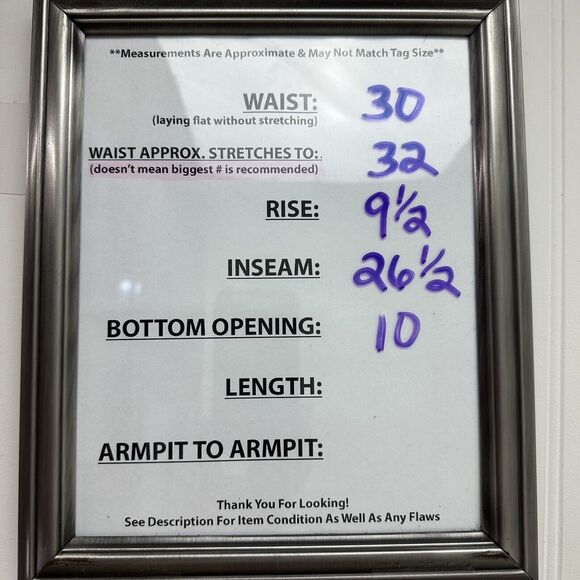 **Measurements Are Approximate & May Not Match Tag Size**
WAIST: 30
(laying flat without stretching)
WAIST APPROX. STRETCHES TO:. 32
(doesn't mean biggest # is recommended)
RISE: 9 1/2
INSEAM: 26 1/2
BOTTOM OPENING: 10
LENGTH:
ARMPIT TO ARMPIT:
Thank You For Looking!
See Description For Item Condition As Well As Any Flaws